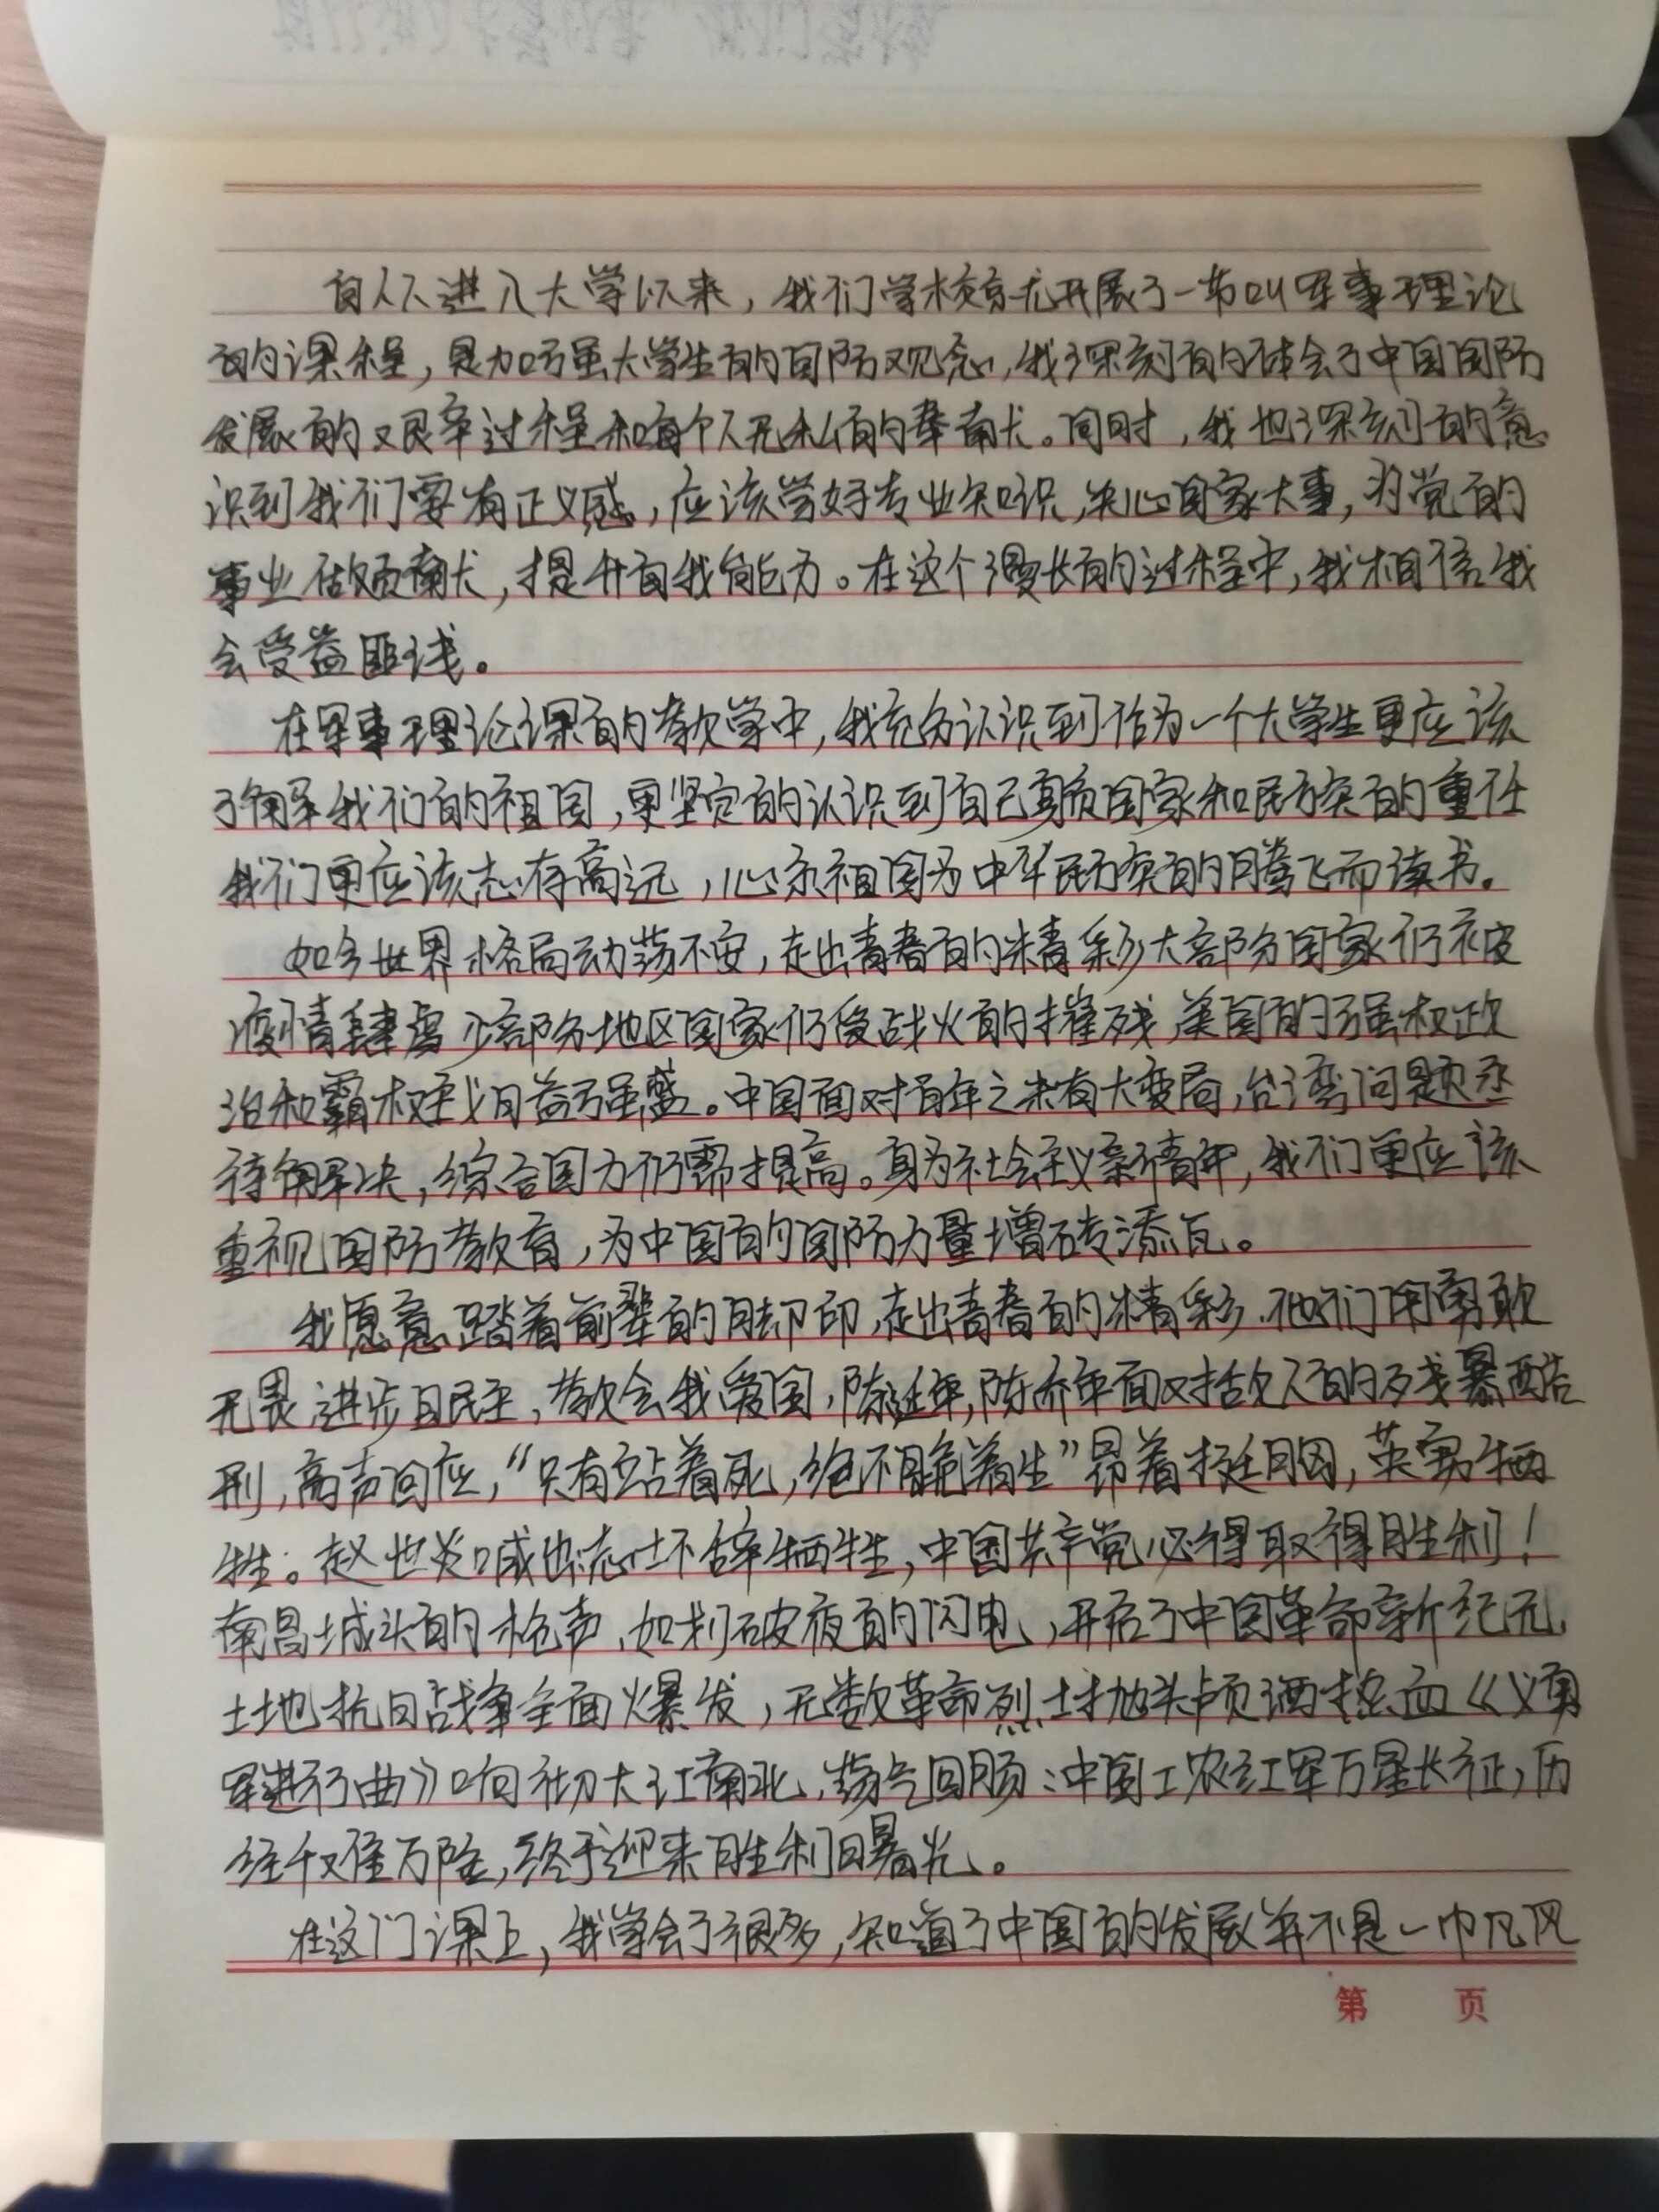 自从进入大学以来，我们学校就开展了一节叫军事理论
的课程，是加强大学生的国防观念，我深刻的体会了中国国防
发展的艰辛过程和每个人无私的奉献。同时，我也深刻的意
识到我们要有正义感，应该学好专业知识，关心国家大事，为党的
事业做贡献，提升自我能力。在这个漫长的过程中，我相信我
会受益匪浅。
在军事理论课的教学中，我充分认识到作为一个大学生更应该
了解我们的祖国，更坚定的认识到自己身负国家和民族的重任
我们更应该志存高远，心系祖国为中华民族的腾飞而读书。
如今世界格局动荡不安，走出青春的精彩大部分国家仍被
疫情肆虐少部分地区国家仍受战火的摧残，美国的强权政
治和霸权主义日益强盛。中国面对百年之未有大变局，台湾问题亟
待解决，综合国力仍需提高。身为社会主义新青年，我们更应该
重视国防教育，为中国的国防力量增砖添瓦。
我愿意踏着前辈的脚印，走出青春的精彩，他们用勇敢
无畏进步且民主，教会我爱国，陈延年，陈乔年面对敌人的残暴酷
刑，高声回应，“只有站着死，绝不跪着生”昂着挺胸，英勇牺
牲。赵世炎喊出志士不辞牺牲，中国共产党必得取得胜利！
南昌城头的枪声，如划破夜的闪电，开启了中国革命新纪元，
土地抗日战争全面爆发，无数革命烈士抛头颅洒热血《义勇
军进行曲》响彻大江南北，荡气回肠；中国工农红军万里长征，历
经千难万险，终于迎来胜利曙光。
在这门课上，我学会了很多，知道了中国的发展并不是一帆风
第 页